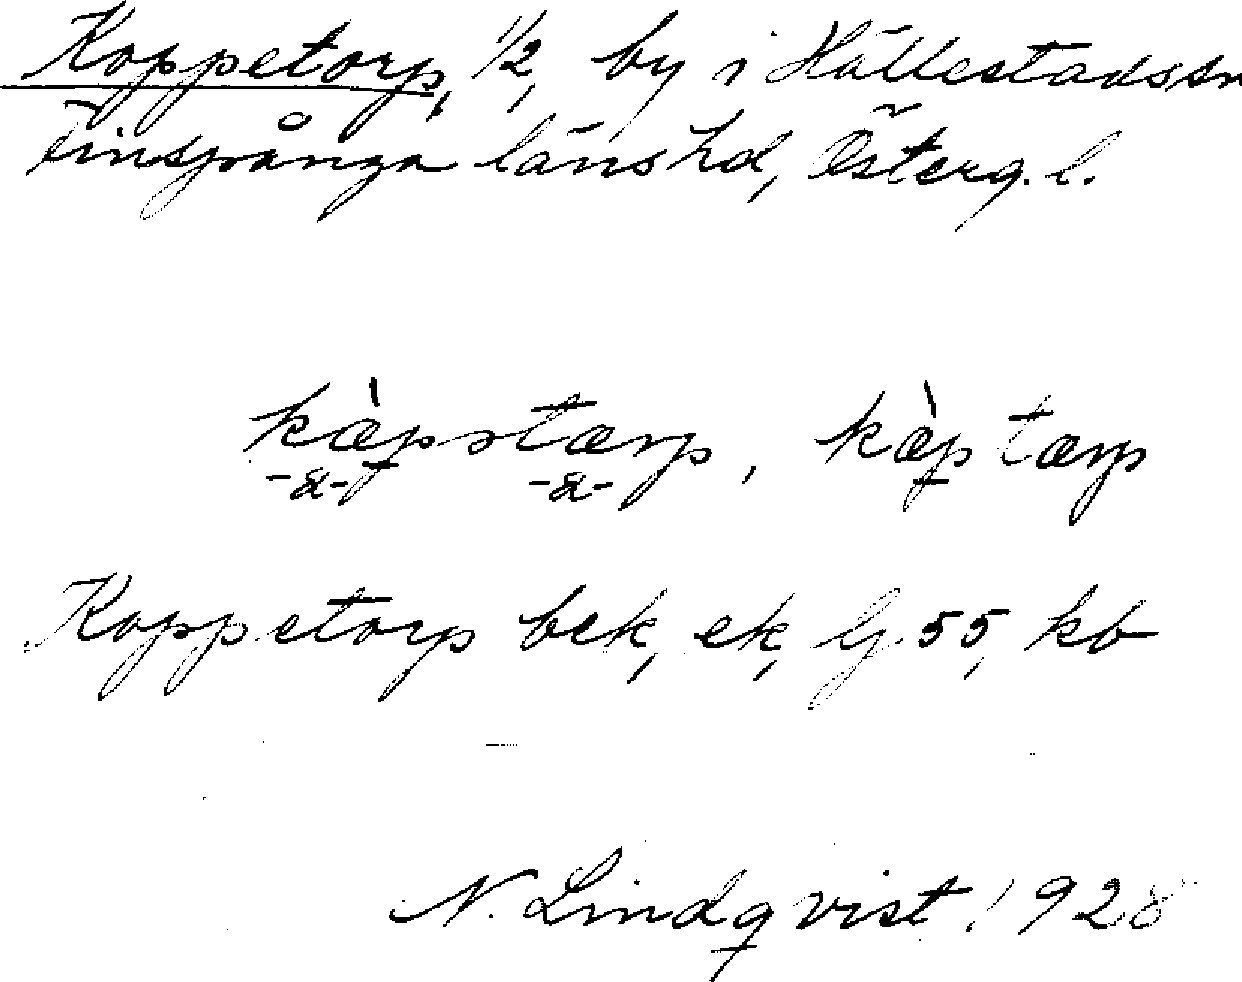 Koppetorp, 1/2, by i Hällestads sn
Finspånga läns hd, Österg. l.
kæ̀pstærp, kæ̀ptærp
-a- -a-
Koppetorp bek, ek, Gj. 55, kb
N. Lindqvist 1928